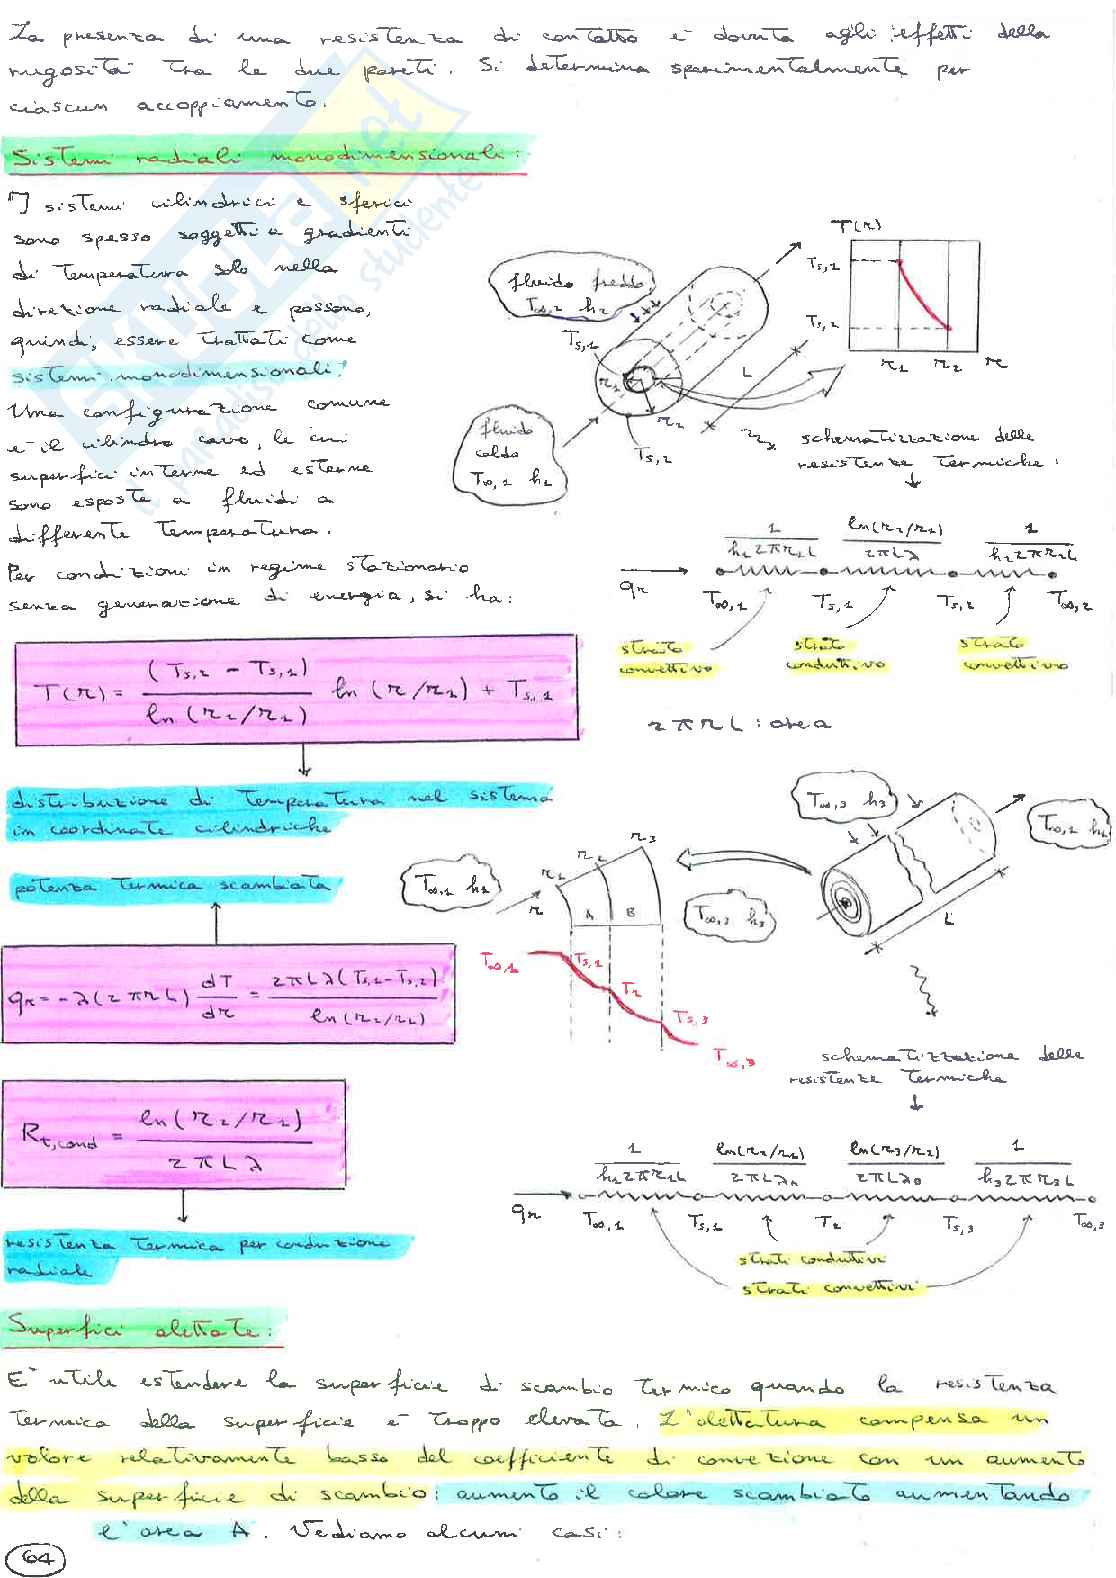 La presenza di una resistenza di contatto è dovuta agli effetti della
rugosità tra le due pareti. Si determina sperimentalmente per
ciascun accoppiamento.
Sistemi radiali monodimensionali:
I sistemi cilindrici e sferici
sono spesso soggetti a gradienti
di temperatura solo nella
direzione radiale e possono,
quindi, essere trattati come
sistemi monodimensionali!
Una configurazione comune
è il cilindro cavo, le cui
superfici interne ed esterne
sono esposte a fluidi a
differente temperatura.
Per condizioni in regime stazionario
senza generazione di energia, si ha:
fluido freddo
T∞,2 h2
Ts,1
r1
r2
Ts,2
L
fluido
caldo
T∞,1 h1
T(r)
Ts,1
Ts,2
r1 r2 r
schematizzazione delle
resistenze termiche:
1/(h1 2πr1L) ln(r2/r1)/(2πLλ) 1/(h2 2πr2L)
qr T∞,1 Ts,1 Ts,2 T∞,2
strato convettivo
strato conduttivo
strato convettivo
T(r) = (Ts,2 - Ts,1)/ln(r2/r1) ln(r/r1) + Ts,1
2πrL : area
distribuzione di temperatura nel sistema
in coordinate cilindriche
potenza termica scambiata
qr = -λ(2πrL) dT/dr = 2πLλ(Ts,1-Ts,2)/ln(r2/r1)
Rt,cond = ln(r2/r1)/2πLλ
resistenza termica per conduzione
radiale
T∞,3 h3
T∞,1 h1
L
T∞,1 h1
r r1 r2 r3
A B
T∞,3 h3
T∞,1 Ts,1 T2 Ts,3 T∞,3
schematizzazione delle
resistenze termiche
1/(h1 2πr1L) ln(r2/r1)/(2πLλA) ln(r3/r2)/(2πLλB) 1/(h3 2πr3L)
qr T∞,1 Ts,1 T2 Ts,3 T∞,3
strati conduttivi
strati convettivi
Superfici alettate:
E' utile estendere la superficie di scambio termico quando la resistenza
termica della superficie è troppo elevata. L'alettatura compensa un
valore relativamente basso del coefficiente di convezione con un aumento
della superficie di scambio: aumento il calore scambiato aumentando
l'area A. Vediamo alcuni casi:
64
SKUOLA.net
il paradiso dello studente